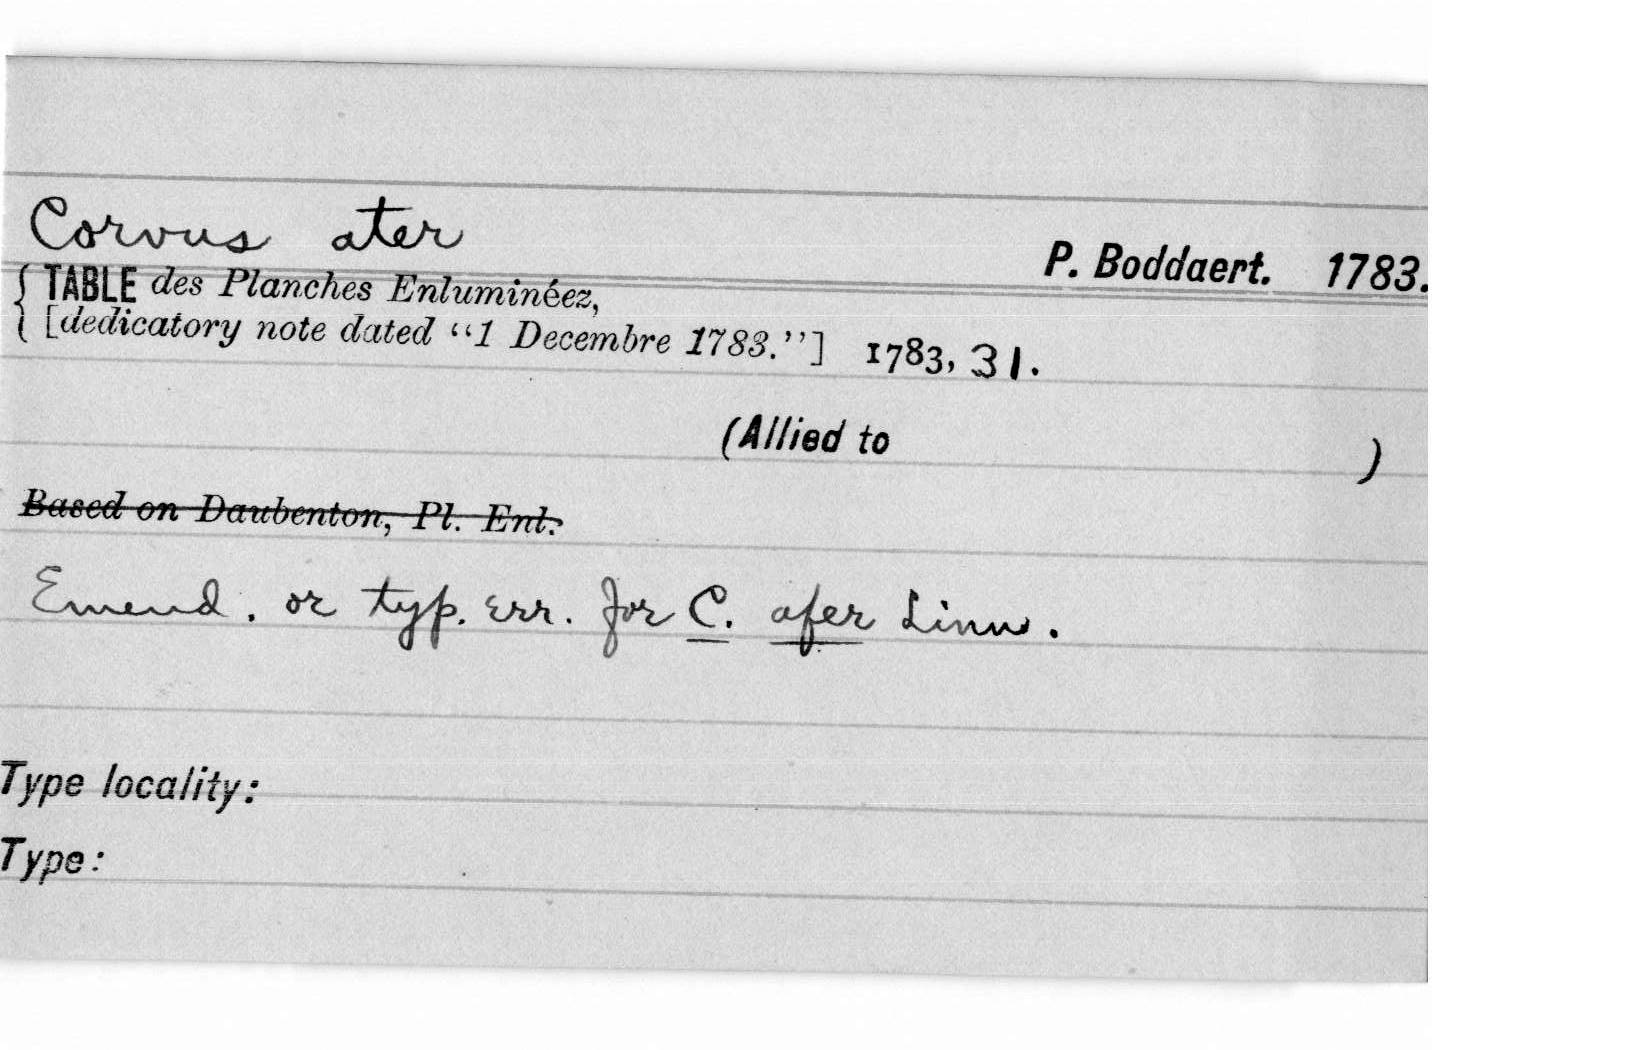 Corvus ater
P. Boddaert. 1783.
{ TABLE des Planches Enluminéez,
[dedicatory note dated “1 Decembre 1783.”] 1783, 31.
(Allied to )
Based on Daubenton, Pl. Enl.
Emend. or typ. err. for C. afer Linn.
Type locality:
Type: